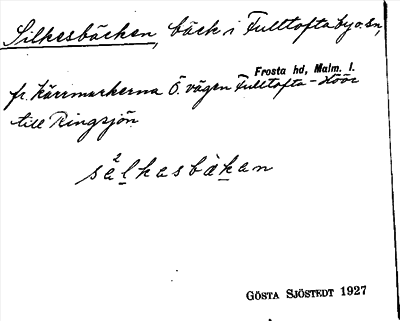 Silkesbäcken, bäck i Fulltofta by o. sn,
Frosta hd, Malm. l.
fr. Kärrmarkerna Ö. vägen Fulltofta - Höör
till Ringsjön
Gösta Sjöstedt 1927